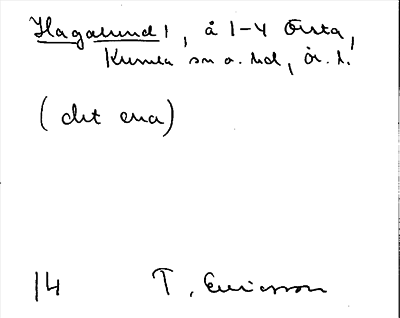 Hagalund 1, å 1–4 Örsta,
Kumla sn o. hd, Ör. l.
(det ena)
14 T. Ericsson